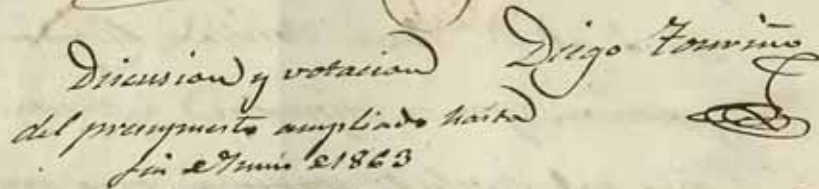 Discusion y votacion
del presupuesto ampliado hasta
fin de Junio de 1863
Diego Touriño